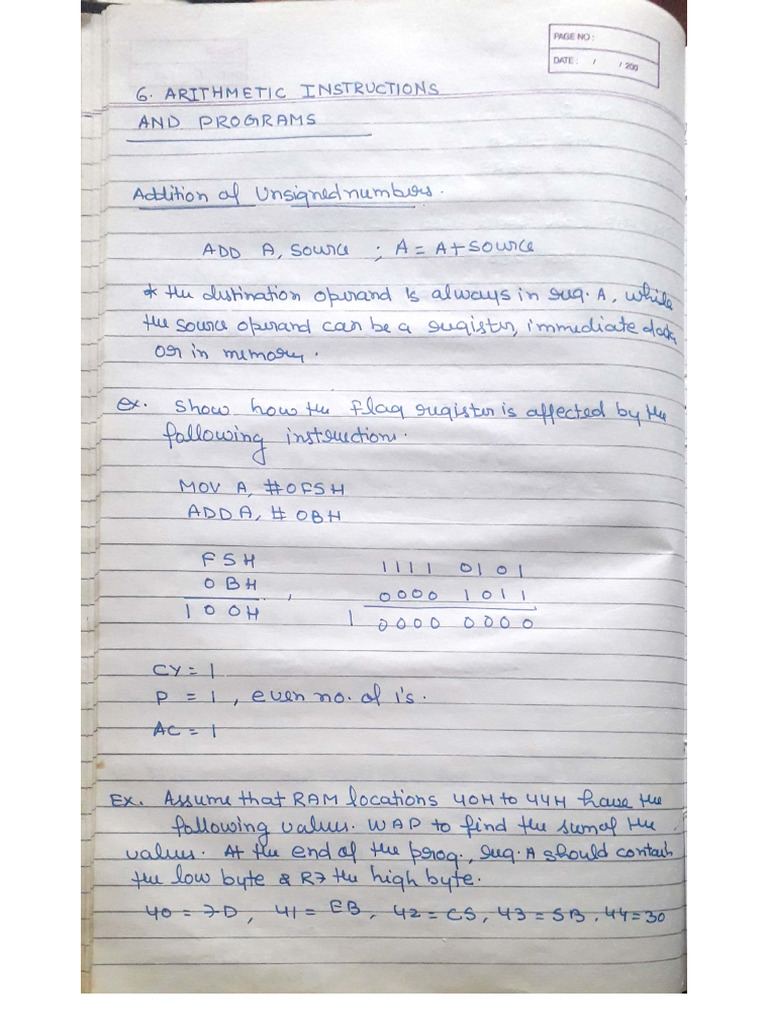 PAGE NO :
DATE : / / 200
6. ARITHMETIC INSTRUCTIONS
AND PROGRAMS
Addition of Unsigned numbers.
ADD A, Source ; A = A + source
* the destination operand is always in reg. A, while
the source operand can be a register, immediate data
or in memory.
ex. Show how the flag register is affected by the
following instruction.
MOV A, #0F5H
ADD A, # 0BH
F5H 1111 0101
0BH , 0000 1011
100H 1 0000 0000
CY = 1
P = 1, even no. of 1's.
AC = 1
EX. Assume that RAM locations 40H to 44H have the
following values. WAP to find the sum of the
values. At the end of the prog., reg. A should contain
the low byte & R7 the high byte.
40 = 7D, 41 = EB, 42 = C5, 43 = 5B, 44 = 30